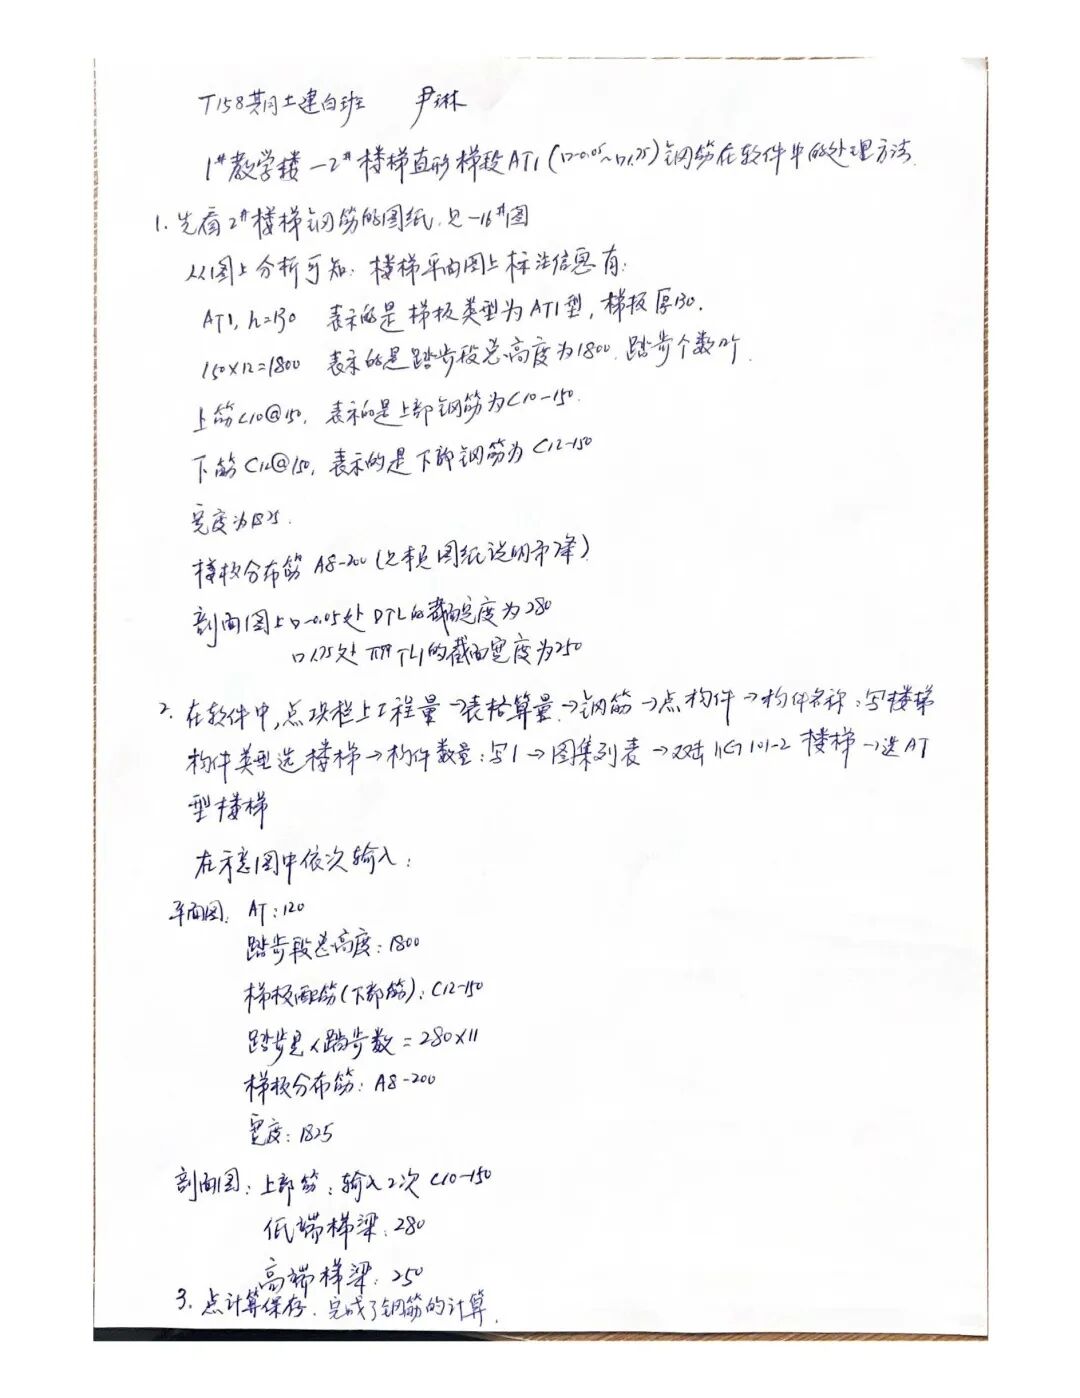 T158期土建白班 尹琳
1#教学楼—2#楼梯直形梯段AT1(口-0.05~口1.75)钢筋在软件中的处理方法
1. 先看2#楼梯钢筋的图纸.见-16#图
从图上分析可知: 楼梯平面图上标注信息有:
AT1, h=130 表示的是梯板类型为AT1型, 梯板厚130.
150×12=1800 表示的是踏步段总高度为1800.踏步个数12个.
上筋C10@150, 表示的是上部钢筋为C10-150.
下筋C12@150, 表示的是下部钢筋为C12-150
宽度为1825.
梯板分布筋 A8-200 (图纸说明
剖面图上口-0.05处DTL的截面宽度为280
口1.75处 TL1的截面宽度为250
2. 在软件中,点 栏上工程量→表格算量→钢筋→点构件→构件名称:写楼梯
构件类型选楼梯→构件数量:写1→图集列表→双击11G101-2楼梯→选AT
型楼梯
在示意图中依次输入:
平面图: AT:120
踏步段总高度:1800
梯板配筋(下部筋):C12-150
踏步宽×踏步数=280×11
梯板分布筋:A8-200
宽度:1825
剖面图:上部筋:输入2次 C10-150
低端梯梁:280
高端梯梁:250
3. 点计算保存.完成了钢筋的计算.